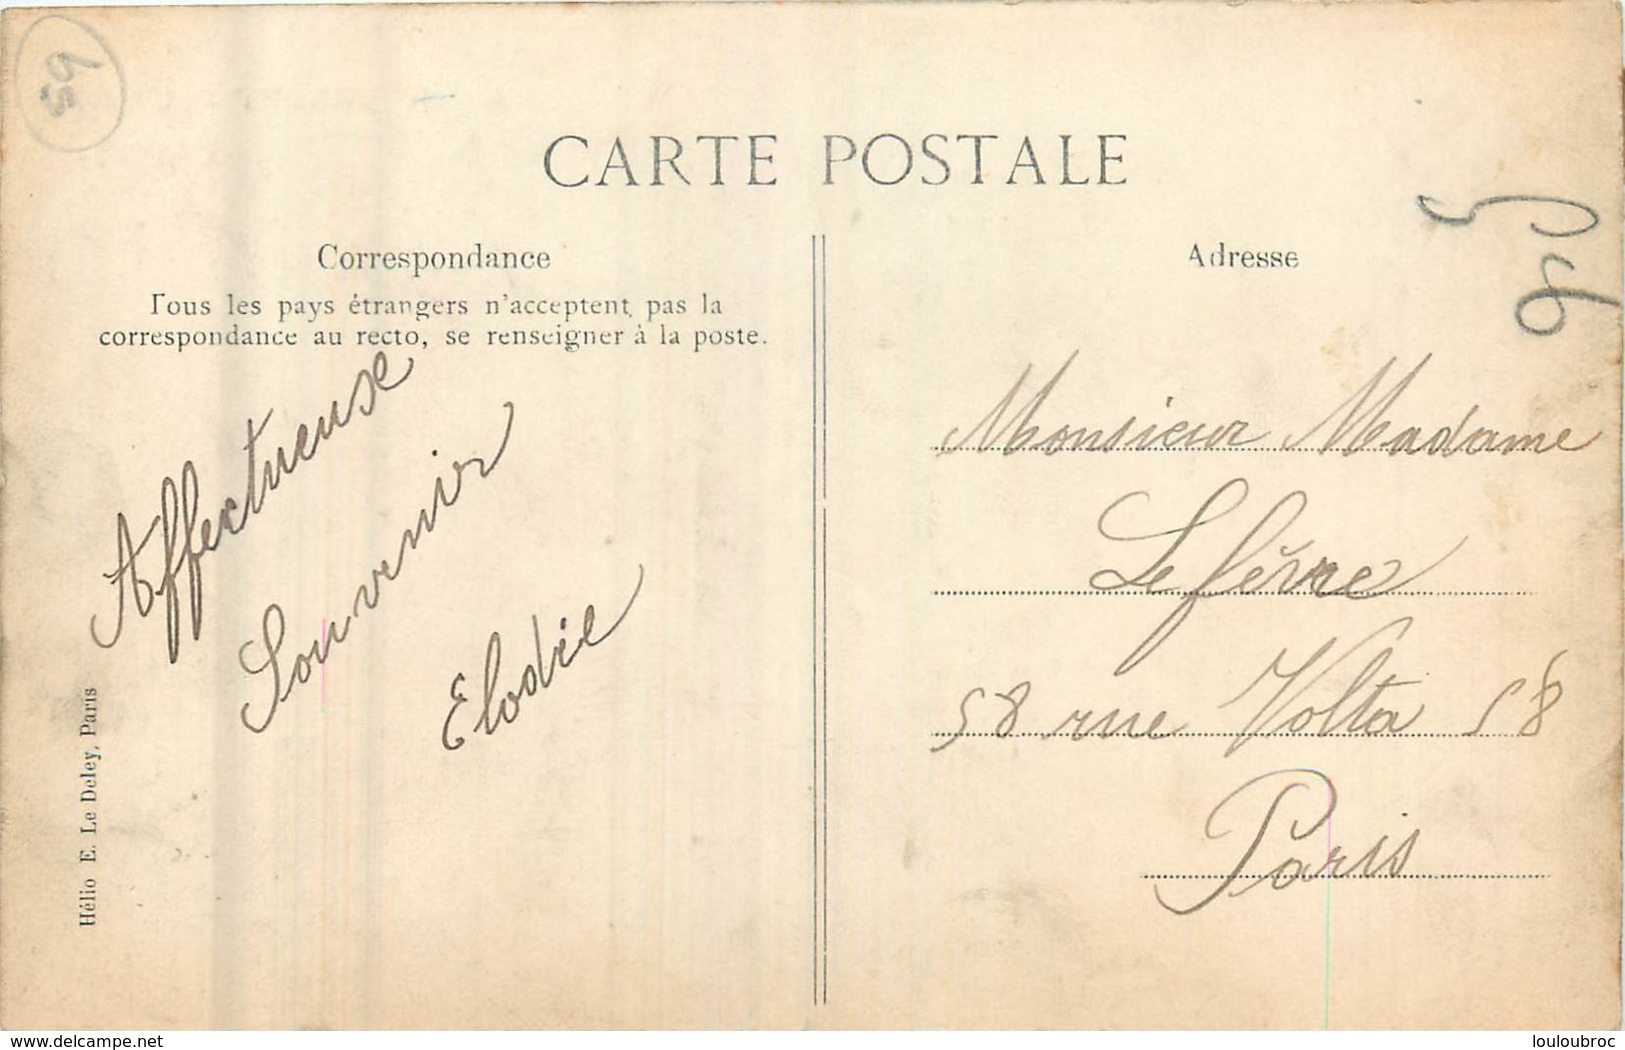 CARTE POSTALE
Correspondance
Tous les pays étrangers n'acceptent pas la
correspondance au recto, se renseigner à la poste.
Affectueuse
Souvenir
Elodie
Hélio E. Le Deley, Paris
Adresse
Monsieur Madame
Lefèvre
58 rue Volta 58
Paris
delcampe.net
louloubroc